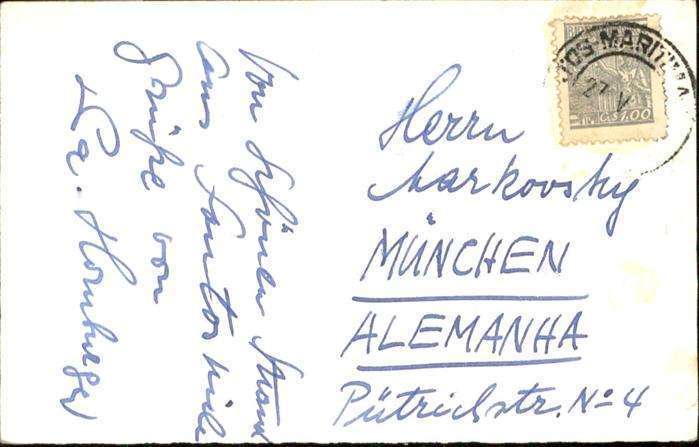 Von schönen Strand
aus Santos viele
Grüße von
La. Homburger
Herrn
Markovsky
MÜNCHEN
ALEMANHA
Pütrichstr. No 4
OS-MARITIMA
27 V
Cr$1,00